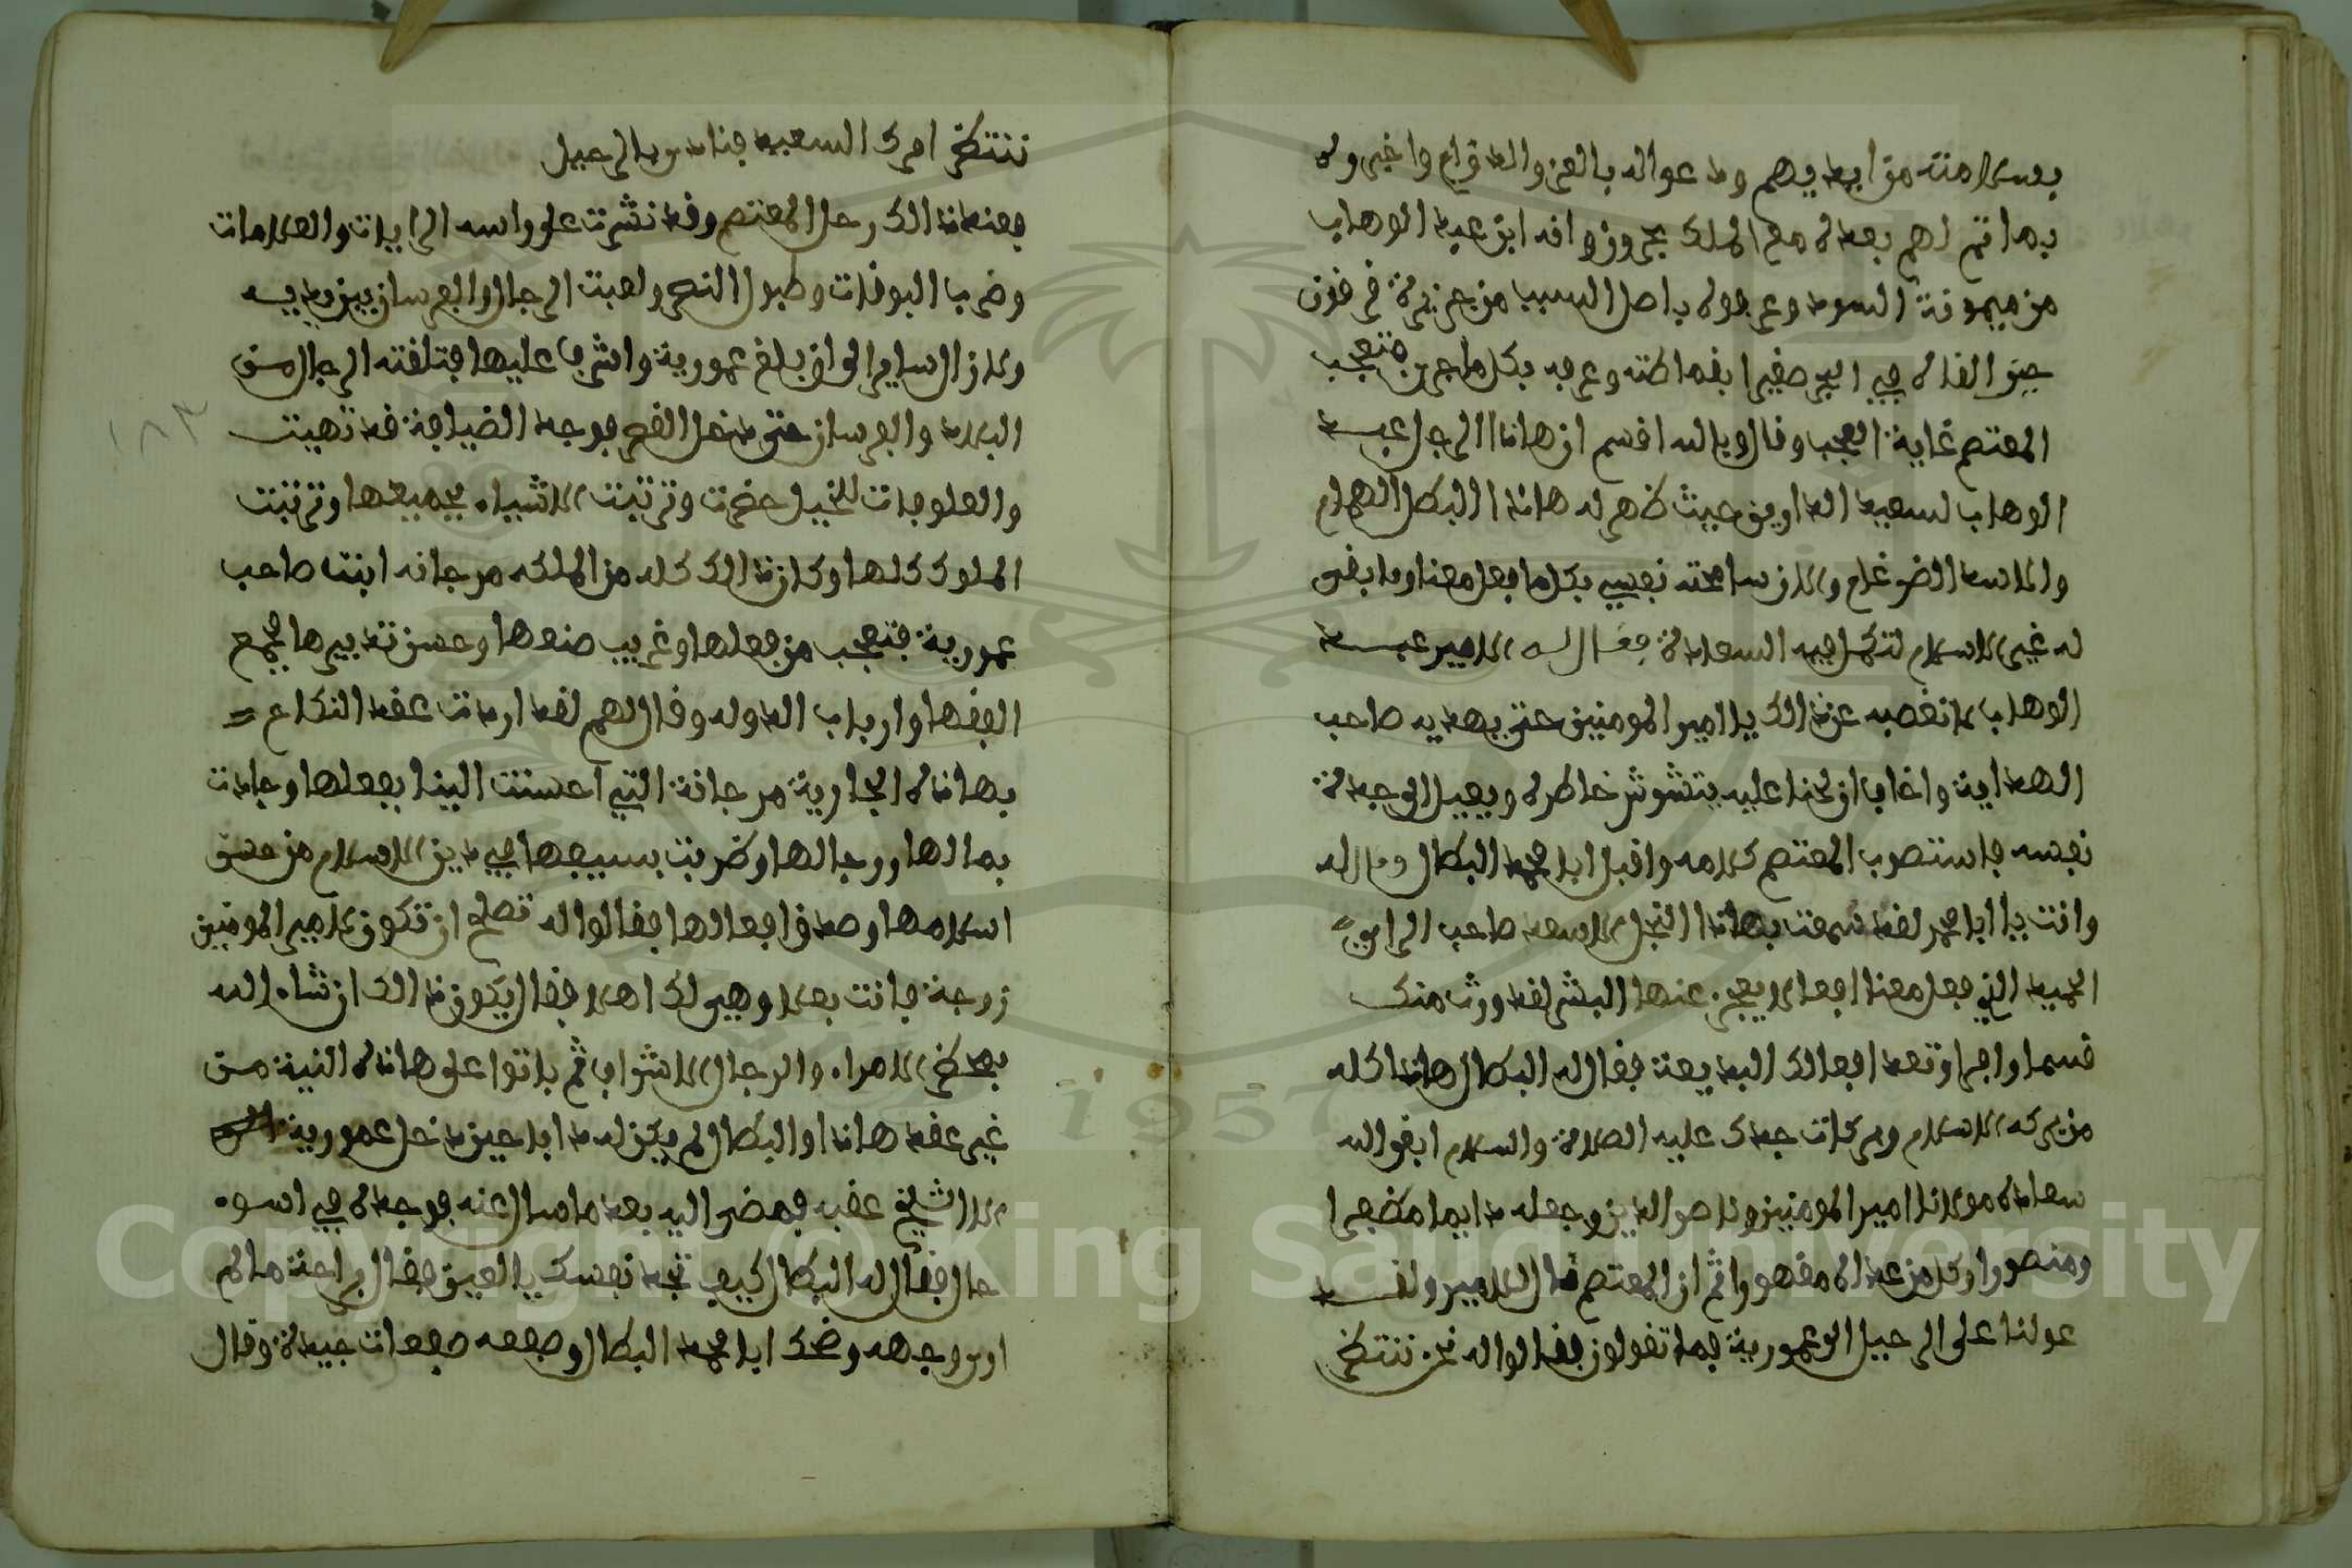 بسلامته من ايديهم ودعوا له بالعز والدوام واخبروه
بما تم لهم بعده مع الملك بحرون وافد ابن عبد الوهاب
من ميمونة السوء وعرفوه باصل السبب من جزيرة فرقون
حين القاه في البير صغيرا بقماطته وعرفه بكل ما جرى فتعجب
المعتصم غاية العجب وقال وبالله اقسم ان هاذا الرجل عبد
الوهاب لسعيد الدارين حيث ظهر له هاذا البطل الهمام
والاسد الضرغام والان سامحته نفسي بكل ما فعل معنا وما بقى
له غير الاسلام لتكمل فيه السعادة فقال له الامير عبد
الوهاب لا تغصبه عن ذالك يا امير المومنين حتى يهديه صاحب
الهداية واخاف ان لحنا عليه يتشوش خاطره ويميل الى جهة
نفسه فاستصوب المعتصم كلامه واقبل ابا محمد البطال وقال له
وانت يا ابا محمد لقد سمعت بهاذا النجل الاسعد صاحب الراي
الحميد الذي فعل معنا افعالا يعجز عنها البشر لقد ورث منك
قسما وافرا وتعد افعالك البديعة فقال له البطال هاذا كله
من بركة الاسلام وبركات جدك عليه الصلاة والسلام ابقى الله
سعادة مولانا امير المومنين وناصر الدين وجعله دايما مظفرا
ومنصورا وكل من عاداه مقهورا ثم ان المعتصم قال للامير ولقد
عولنا على الرحيل الى عمورية فما تقولون فقالوا له نحن ننتظر
ننتظر امرك السعيد فنادى بالرحيل
فعند ذالك رحل المعتصم وقد نشرت على راسه الرايات والعلامات
وضربا البوقات وطبول النصر ولعبت الرجال والفرسان بين يديه
ولازال ساير الى ان بلغ عمورية واشرف عليها فتلقته الرجال من
البلاد والفرسان حتى دخل القصر فوجد الضيافة قد تهيت
والعلوفات للخيل حضرت وترتبت الاشياء بجميعها وترتبت
الملوك كلها وكان ذالك كله من الملكه مرجانه ابنت صاحب
عمورية فتعجب من فعلها وغريب صنعها وحسن تدبيرها فجمع
الفقها وارباب الدوله وقال لهم لقد اردت عقد النكاح
بهاذه الجارية مرجانة التي احسنت الينا بفعلها وجادت
بمالها ورجالها وضربت بسيفها في دين الاسلام من حسن
اسلامها وصدق افعالها فقالوا له تصلح ان تكون لامير المومنين
زوجة فانت بعلا وهي لك اهلا فقال يكون ذالك ان شاء الله
بمحضر الامراء والرجال الاشراف ثم باتوا على هاذه النية من
غير عقد هاذا والبطال لم يكن له دابا حين دخل عمورية
الا الشيخ عقبه فمضى اليه بعد ما سال عنه فوجده في اسوء
حال فقال له البطال كيف تجد نفسك يا لعين فقال براحة مالم
ارى وجهه وضحك ابا محمد البطال وصفعه صفعات جيدة وقال